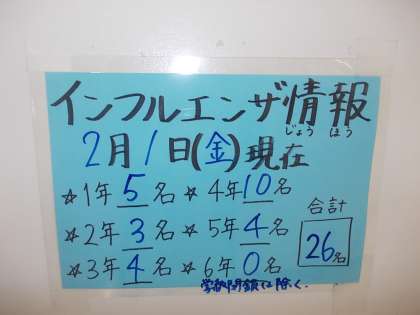 インフルエンザ情報
じょう ほう
2月1日(金)現在
☆1年5名 ☆4年10名
☆2年3名 ☆5年4名
☆3年4名 ☆6年0名
合計
26名
学級閉鎖は除く.